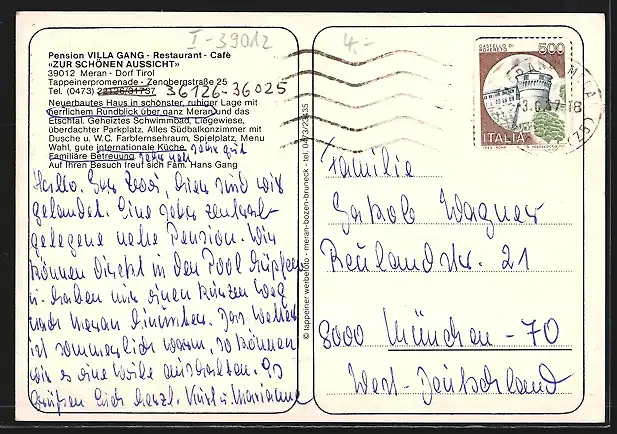 I-39012
4,-
Pension VILLA GANG - Restaurant - Café
«ZUR SCHÖNEN AUSSICHT»
39012 Meran - Dorf Tirol
Tappeinerpromenade - Zenobergstraße 25
Tel. (0473) 22126/31737 36126-36025
Neuerbautes Haus in schönster, ruhiger Lage mit
herrlichem Rundblick über ganz Meran und das
Etschtal. Geheiztes Schwimmbad, Liegewiese,
überdachter Parkplatz. Alles Südbalkonzimmer mit
Dusche u. W.C. Farbfernsehraum, Spielplatz, Menu
Wahl, gute internationale Küche. sehr gut
Familiäre Betreuung. sehr nett
Auf Ihren Besuch freut sich Fam. Hans Gang
Hallo, Ihr Zwei, hier sind wir
gelandet. Eine sehr zentral-
gelegene nette Pension. Wir
können direkt in den Pool hüpfen
u. haben nur einen kurzen Weg
nach Meran hinunter. Das Wetter
ist sommerlich warm, so können
wir es eine Weile aushalten. Es
grüßen Euch herzl. Kurt u Marianne
© tappeiner werbefoto - meran-bozen-bruneck - tel.
CASTELLO DI
ROVERETO
500
ITALIA
MERAN
-18
Familie
Wagner
Reulandstr. 21
8000 München - 70
West-Deutschland